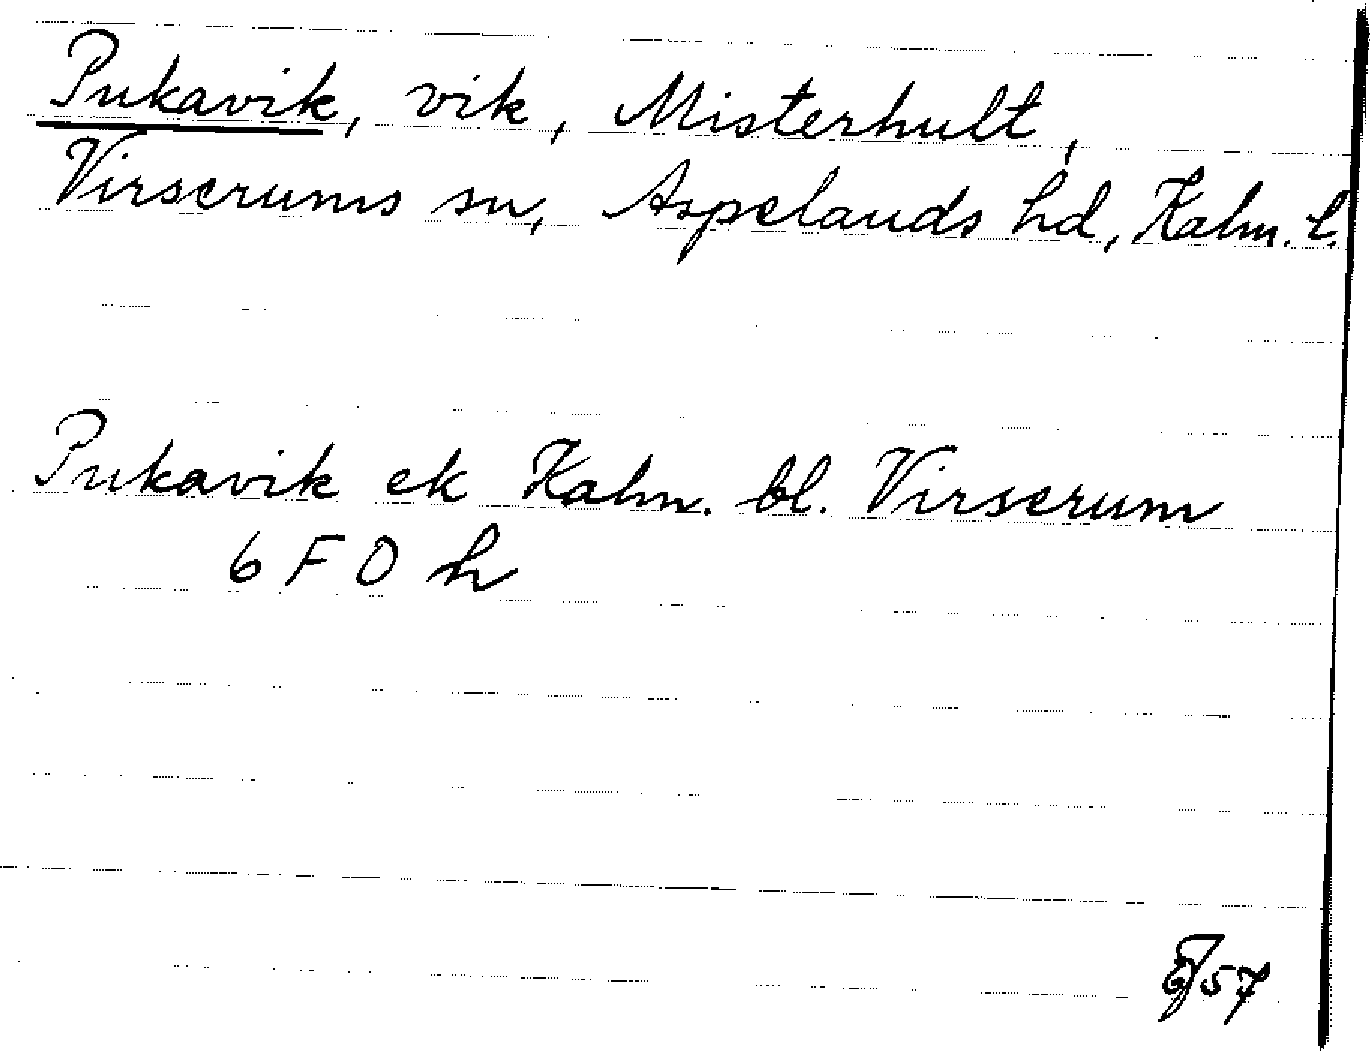 Pukavik, vik, Misterhult,
Virserums sn, Aspelands hd, Kalm. l.
Pukavik ek Kalm. bl. Virserum
6 F 0 h
57